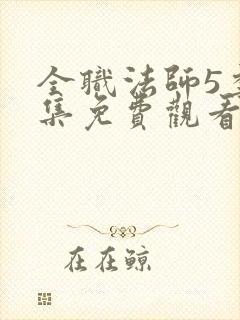 全職法師5季
集免費觀看
在在鯨